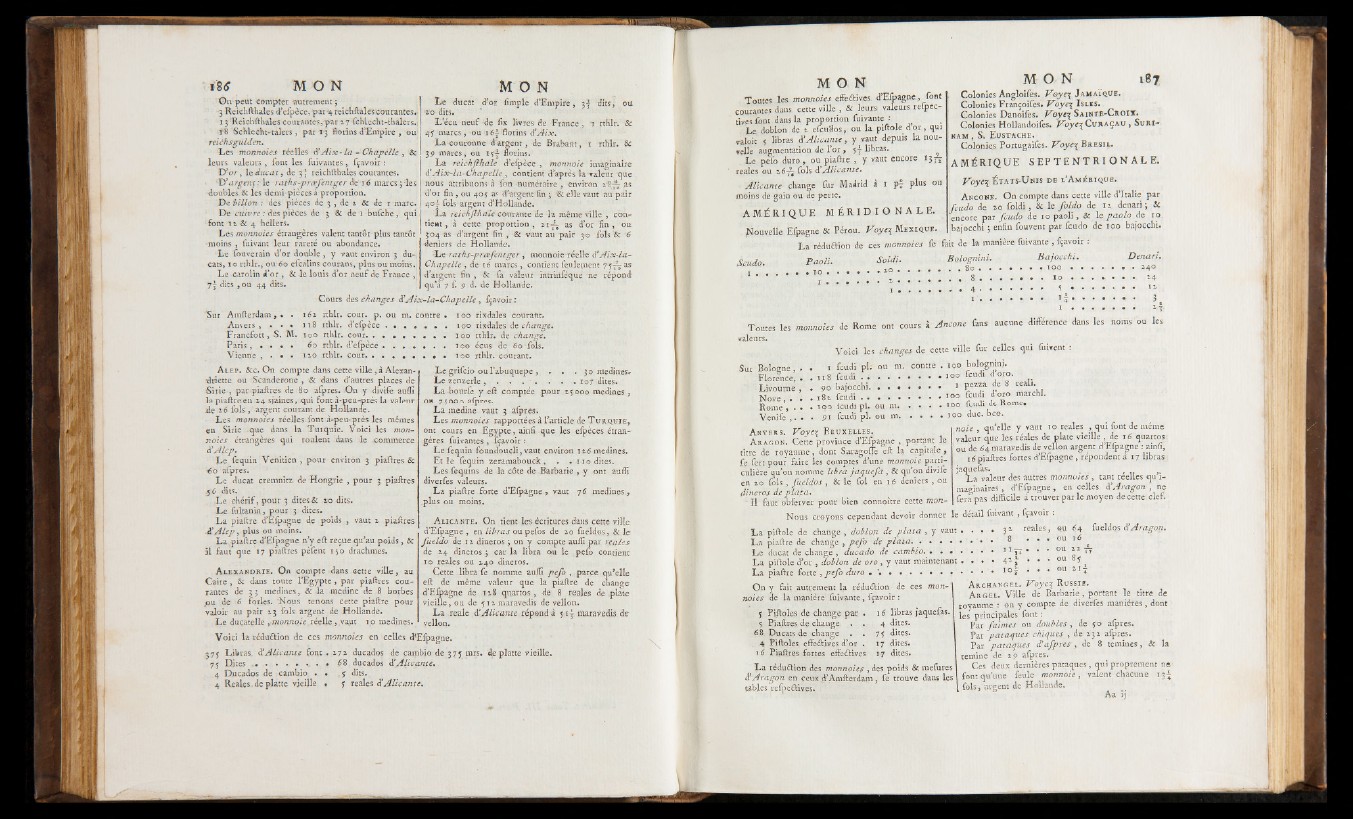 186 MON MON
On peut compter autrement ;
3 Reichsthales d'espèce, par 4 reichsthales courantes.
13 Reichsthales courantes, par 27 schlecht-thalers.
18 Schlecht-talers, par 13 florins d'Empire, ou
reichsgulden.
Les monnoies réelles d'Aix-la-Chapelle, &
leurs valeurs, sont les suivantes, sçavoir :
D'or, le ducat, de 3½ reichsthales courantes.
D'argent : le raths-præsentger de 16 marcs ; les
doubles & les demi-pièces à proportion.
De billon : des pièces de 3, de 2 & de 1 marc.
De cuivre : des pièces de 3 & de 1 busche, qui
font 12 & 4 hellers.
Les monnoies étrangères valent tantôt plus tantôt
moins, suivant leur rareté ou abondance.
Le souverain d'or double, y vaut environ 5 du-
cats, 10 rthlr., ou 60 escalins courans, plus ou moins.
Le carolin d'or, & le louis d'or neuf de France,
7⅓ dits, ou 44 dits.
Le ducat d'or simple d'Empire, 3⅓ dits, ou
20 dits.
L'écu neuf de six livres de France, 1 rthlr. &
45 marcs, ou 16½ florins d'Aix.
La couronne d'argent, de Brabant, 1 rthlr. &
39 marcs, ou 15½ florins.
La reichsthale d'espèce, monnoie imaginaire
d'Aix-la-Chapelle, contient d'après la valeur que
nous attribuons à son numéraire, environ as
d'or fin, ou 405 as d'argent fin ; & elle vaut au pair
sols argent d'Hollande.
La reichsthale courante de la même ville, con-
tient, à cette proportion, as d'or fin, ou
304 as d'argent fin, & vaut au pair 30 sols & 6
deniers de Hollande.
Le raths-præsentger, monnoie réelle d'Aix-la-
Chapelle, de 16 marcs, contient seulement as
d'argent fin, & sa valeur intrinsèque ne répond
qu'à 7 s. 9 d. de Hollande.
Cours des changes d'Aix-la-Chapelle, sçavoir :
Sur Amsterdam, . . 162 rthlr. cour. p. ou m. contre . 100 rixdales courant.
Anvers, . . . 118 rthlr. d'espèce . . . . . . . 100 rixdales de change.
Francfort, S. M. 100 rthlr. cour. . . . . . . . . 100 rthlr. de change.
Paris, . . . . 60 rthlr. d'espèce . . . . . . . 100 écus de 60 sols.
Vienne, . . . 120 rthlr. cour. . . . . . . . . 100 rthlr. courant.
ALEP. &c. On compte dans cette ville, à Alexan-
driette ou Scanderone, & dans d'autres places de
Sirie, par piastres de 80 aspres. On y divise aussi
la piastre en 24 siaines, qui font à-peu-près la valeur
de 26 sols, argent courant de Hollande.
Les monnoies réelles sont à-peu-près les mêmes
en Sirie que dans la Turquie. Voici les mon-
noies étrangères qui roulent dans le commerce
d'Alep.
Le sequin Venitien, pour environ 3 piastres &
60 aspres.
Le ducat cremnitz de Hongrie, pour 3 piastres
56 dits.
Le chérif, pour 3 dites & 20 dits.
Le sultanin, pour 3 dites.
La piastre d'Espagne de poids, vaut 2 piastres
d'Alep, plus ou moins.
La piastre d'Espagne n'y est reçue qu'au poids, &
il faut que 17 piastres pèsent 150 drachmes.
ALEXANDRIE. On compte dans cette ville, au
Caire, & dans toute l'Egypte, par piastres cou-
rantes de 33 medines, & la medine de 8 borbes
ou de 6 forles. Nous tenons cette piastre pour
valoir au pair 23 sols argent de Hollande.
Le ducatelle, monnoie réelle, vaut 10 medines.
Le grifcio ou l'abuquepe, . . . 30 medines.
Le zenzerle, . . . . . . . 107 dites.
La bourse y est comptée pour 25000 medines,
ou 75000 aspres.
La medine vaut 3 aspres.
Les monnoies rapportées à l'article de TURQUIE,
ont cours en Egypte, ainsi que les espèces étran-
gères suivantes, sçavoir :
Le sequin foundoucli, vaut environ 126 medines.
Et le sequin zeramabouck, . . 110 dites.
Les sequins de la côte de Barbarie, y ont aussi
diverses valeurs.
La piastre forte d'Espagne, vaut 76 medines,
plus ou moins.
ALICANTE. On tient les écritures dans cette ville
d'Espagne, en libras ou pesos de 20 sueldos, & le
sueldo de 12 dineros ; on y compte aussi par reales
de 24 dineros ; car la libra ou le peso contient
10 reales ou 240 dineros.
Cette libra se nomme aussi peso, parce qu'elle
est de même valeur que la piastre de change
d'Espagne de 128 quartos, de 8 reales de plate
vieille, ou de 512 maravedis de vellon.
La reale d'Alicante répond à 51⅕ maravedis de
vellon.
Voici la réduction de ces monnoies en celles d'Espagne.
375 Libras d'Alicante font . 272 ducados de cambio de 375 mrs. de platte vieille.
75 Dites . . . . . . . . 68 ducados d'Alicante.
4 Ducados de cambio . . 5 dits.
4 Reales de platte vieille . 5 reales d'Alicante.
MON MON 187
Toutes les monnoies effectives d'Espagne, sont
courantes dans cette ville, & leurs valeurs respec-
tives sont dans la proportion suivante :
Le doblon de 2 escudos, ou la pistole d'or, qui
valoit 5 libras d'Alicante, y vaut depuis la nou-
velle augmentation de l'or, libras.
Le peso duro, ou piastre, y vaut encore
reales ou sols d'Alicante.
Alicante change sur Madrid à 1 p% plus ou
moins de gain ou de perte.
AMÉRIQUE MÉRIDIONALE.
Nouvelle Espagne & Pérou. Voyez MEXIQUE.
Colonies Angloises. Voyez JAMAÏQUE.
Colonies Françoises. Voyez ISLES.
Colonies Danoises. Voyez SAINTE-CROIX.
Colonies Hollandoises. Voyez CURAÇAU, SURI-
NAM, S. EUSTACHE.
Colonies Portugaises. Voyez BRESIL.
AMÉRIQUE SEPTENTRIONALE.
Voyez ÉTATS-UNIS DE L'AMÉRIQUE.
ANCONE. On compte dans cette ville d'Italie par
scudo de 20 soldi, & le soldo de 12 denari ; &
encore par scudo de 10 paoli, & le paolo de 10
bajocchi ; enfin souvent par scudo de 100 bajocchi.
La réduction de ces monnoies se fait de la manière suivante, sçavoir :
Scudo. Paoli. Soldi. Bolognini. Bajocchi. Denari.
1 . . . . . . 10 . . . . . . 20 . . . . . . 80 . . . . . . 100 . . . . . . 240
1 . . . . . . 2 . . . . . . 8 . . . . . . 10 . . . . . . 24
1 . . . . . . 4 . . . . . . 5 . . . . . . 12
1 . . . . . . 1¼ . . . . . . 3
1 . . . . . . 2⅖
Toutes les monnoies de Rome ont cours à Ancone sans aucune différence dans les noms ou les
valeurs.
Voici les changes de cette ville sur celles qui suivent :
Sur Bologne, . . 1 scudi pl. ou m. contre . 100 bolognini.
Florence, . . 118 scudi . . . . . . . . 100 scudi d'oro.
Livourne, . . 90 bajocchi. . . . . . . . 1 pezza de 8 reali.
Nove, . . . 182 scudi . . . . . . . . 100 scudi d'oro marchl.
Rome, . . . 100 scudi pl. ou m. . . . . 100 scudi de Rome.
Venise, . . . 91 scudi pl. ou m. . . . . 100 duc. bco.
ANVERS. Voyez BRUXELLES.
ARAGON. Cette province d'Espagne, portant le
titre de royaume, dont Saragosse est la capitale,
se sert pour faire les comptes d'une monnoie parti-
culière qu'on nomme libra jaquesa, & qu'on divise
en 20 sols, sueldos, & le sol en 16 deniers, ou
dineros de plata.
Il faut observer pour bien connoître cette mon-
noie, qu'elle y vaut 10 reales, qui font de même
valeur que les réales de plate vieille, de 16 quartos
ou de 64 maravedis de vellon argent d'Espagne : ainsi,
16 piastres fortes d'Espagne, répondent à 17 libras
jaquesas.
La valeur des autres monnoies, tant réelles qu'i-
maginaires, d'Espagne, en celles d'Aragon, ne
sera pas difficile à trouver par le moyen de cette clef.
Nous croyons cependant devoir donner le détail suivant, sçavoir :
La pistole de change, doblon de plata, y vaut . . . . 32 reales, ou 64 sueldos d'Aragon.
La piastre de change, peso de plata. . . . . . . . . 8 . . . ou 16
Le ducat de change, ducado de cambio. . . . . . . . . . . ou
La pistole d'or, doblon de oro, y vaut maintenant . . . . 42½ . . . ou 85
La piastre forte, peso duro . . . . . . . . . . . 10⅝ . . . ou 21¼
On y fait autrement la réduction de ces mon-
noies de la manière suivante, sçavoir :
5 Pistoles de change par . 16 libras jaquesas.
5 Piastres de change . . 4 dites.
68 Ducats de change . . 75 dites.
4 Pistoles effectives d'or . 17 dites.
16 Piastres fortes effectives 17 dites.
La réduction des monnoies, des poids & mesures
d'Aragon en ceux d'Amsterdam, se trouve dans les
tables respectives.
ARCHANGEL. Voyez RUSSIE.
ARGEL. Ville de Barbarie, portant le titre de
royaume : on y compte de diverses manières, dont
les principales sont :
Par saimes ou doubles, de 50 aspres.
Par pataques chiques, de 232 aspres.
Par pataques d'aspres, de 8 temines, & la
temine de 29 aspres.
Ces deux dernières pataques, qui proprement ne
font qu'une seule monnoie, valent chacune
sols, argent de Hollande.
Aa ij